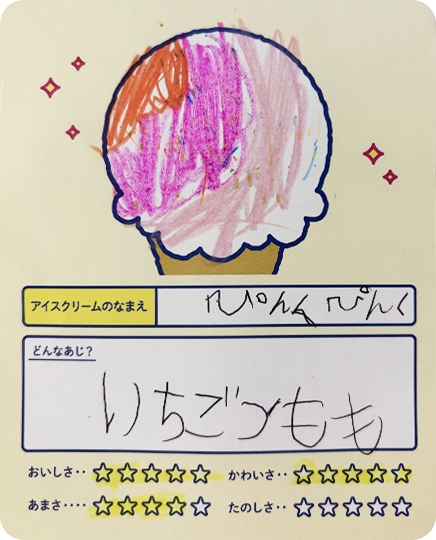 アイスクリームのなまえ ぴんくぴんく
どんなあじ？
いちごつもも
おいしさ‥ ☆☆☆☆☆ かわいさ‥ ☆☆☆☆☆
あまさ‥‥ ☆☆☆☆☆ たのしさ‥ ☆☆☆☆☆